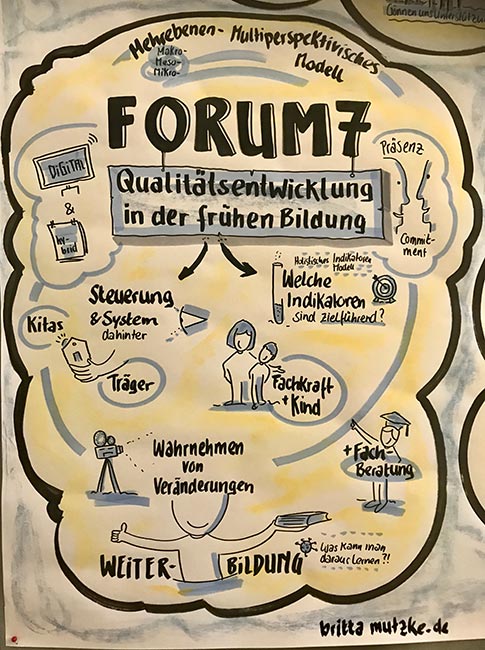 Gönnen uns Unterstützung
Mehrebenen- Multiperspektivisches
Modell
Makro-
Meso-
Mikro-
FORUM 7
Qualitätsentwicklung
in der frühen Bildung
DiGiTAL
&
hy-
brid
Präsenz
Commit-
ment
Holistisches Indikatoren
Modell
Welche
Indikatoren
sind zielführend?
Steuerung
& System
dahinter
Kitas
Träger
Fachkraft
+ Kind
Wahrnehmen
von
Veränderungen
+ Fach-
Beratung
WEiTER- BiLDUNG
Was kann man
daraus lernen?!
britta mutzke.de